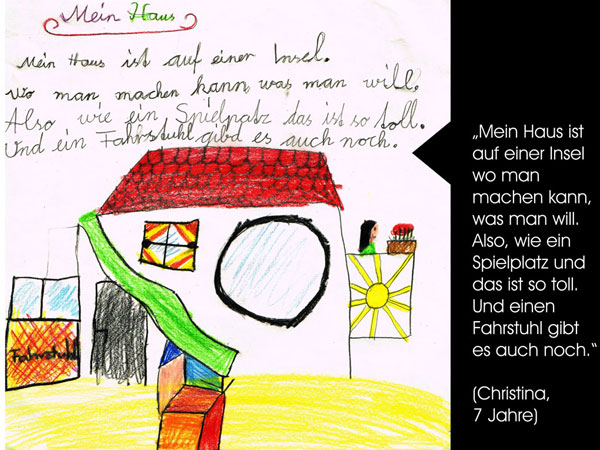 Mein Haus
Mein Haus ist auf einer Insel.
Wo man machen kann, was man will.
Also wie ein Spielplatz das ist so toll.
Und ein Fahrstuhl gibd es auch noch.
Fahrstuhl
„Mein Haus ist
auf einer Insel
wo man
machen kann,
was man will.
Also, wie ein
Spielplatz und
das ist so toll.
Und einen
Fahrstuhl gibt
es auch noch.“
(Christina,
7 Jahre)